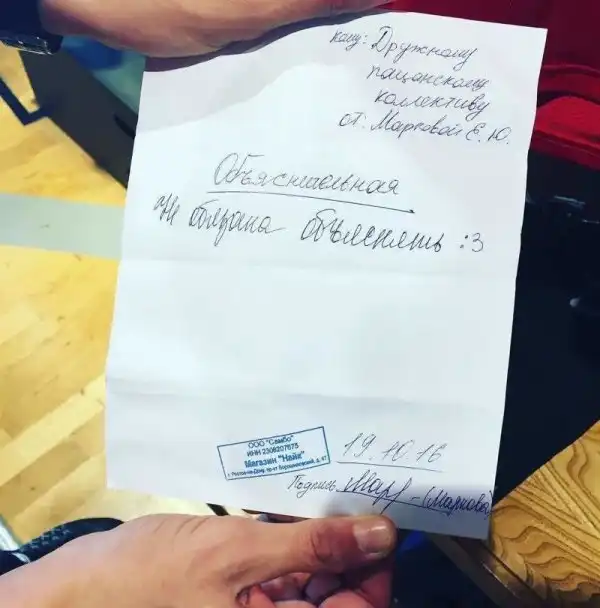 кому: Дружному
пацанскому
коллективу
от: Марковой Е. Ю.
Объяснительная
"Не обязана объяснять :3
ООО "Самбо"
ИНН 2308207675
Магазин "Найк"
г. Ростов-на-Дону, пр-кт Ворошиловский, д. 47
19.10.16
Подпись Мар – (Маркова)